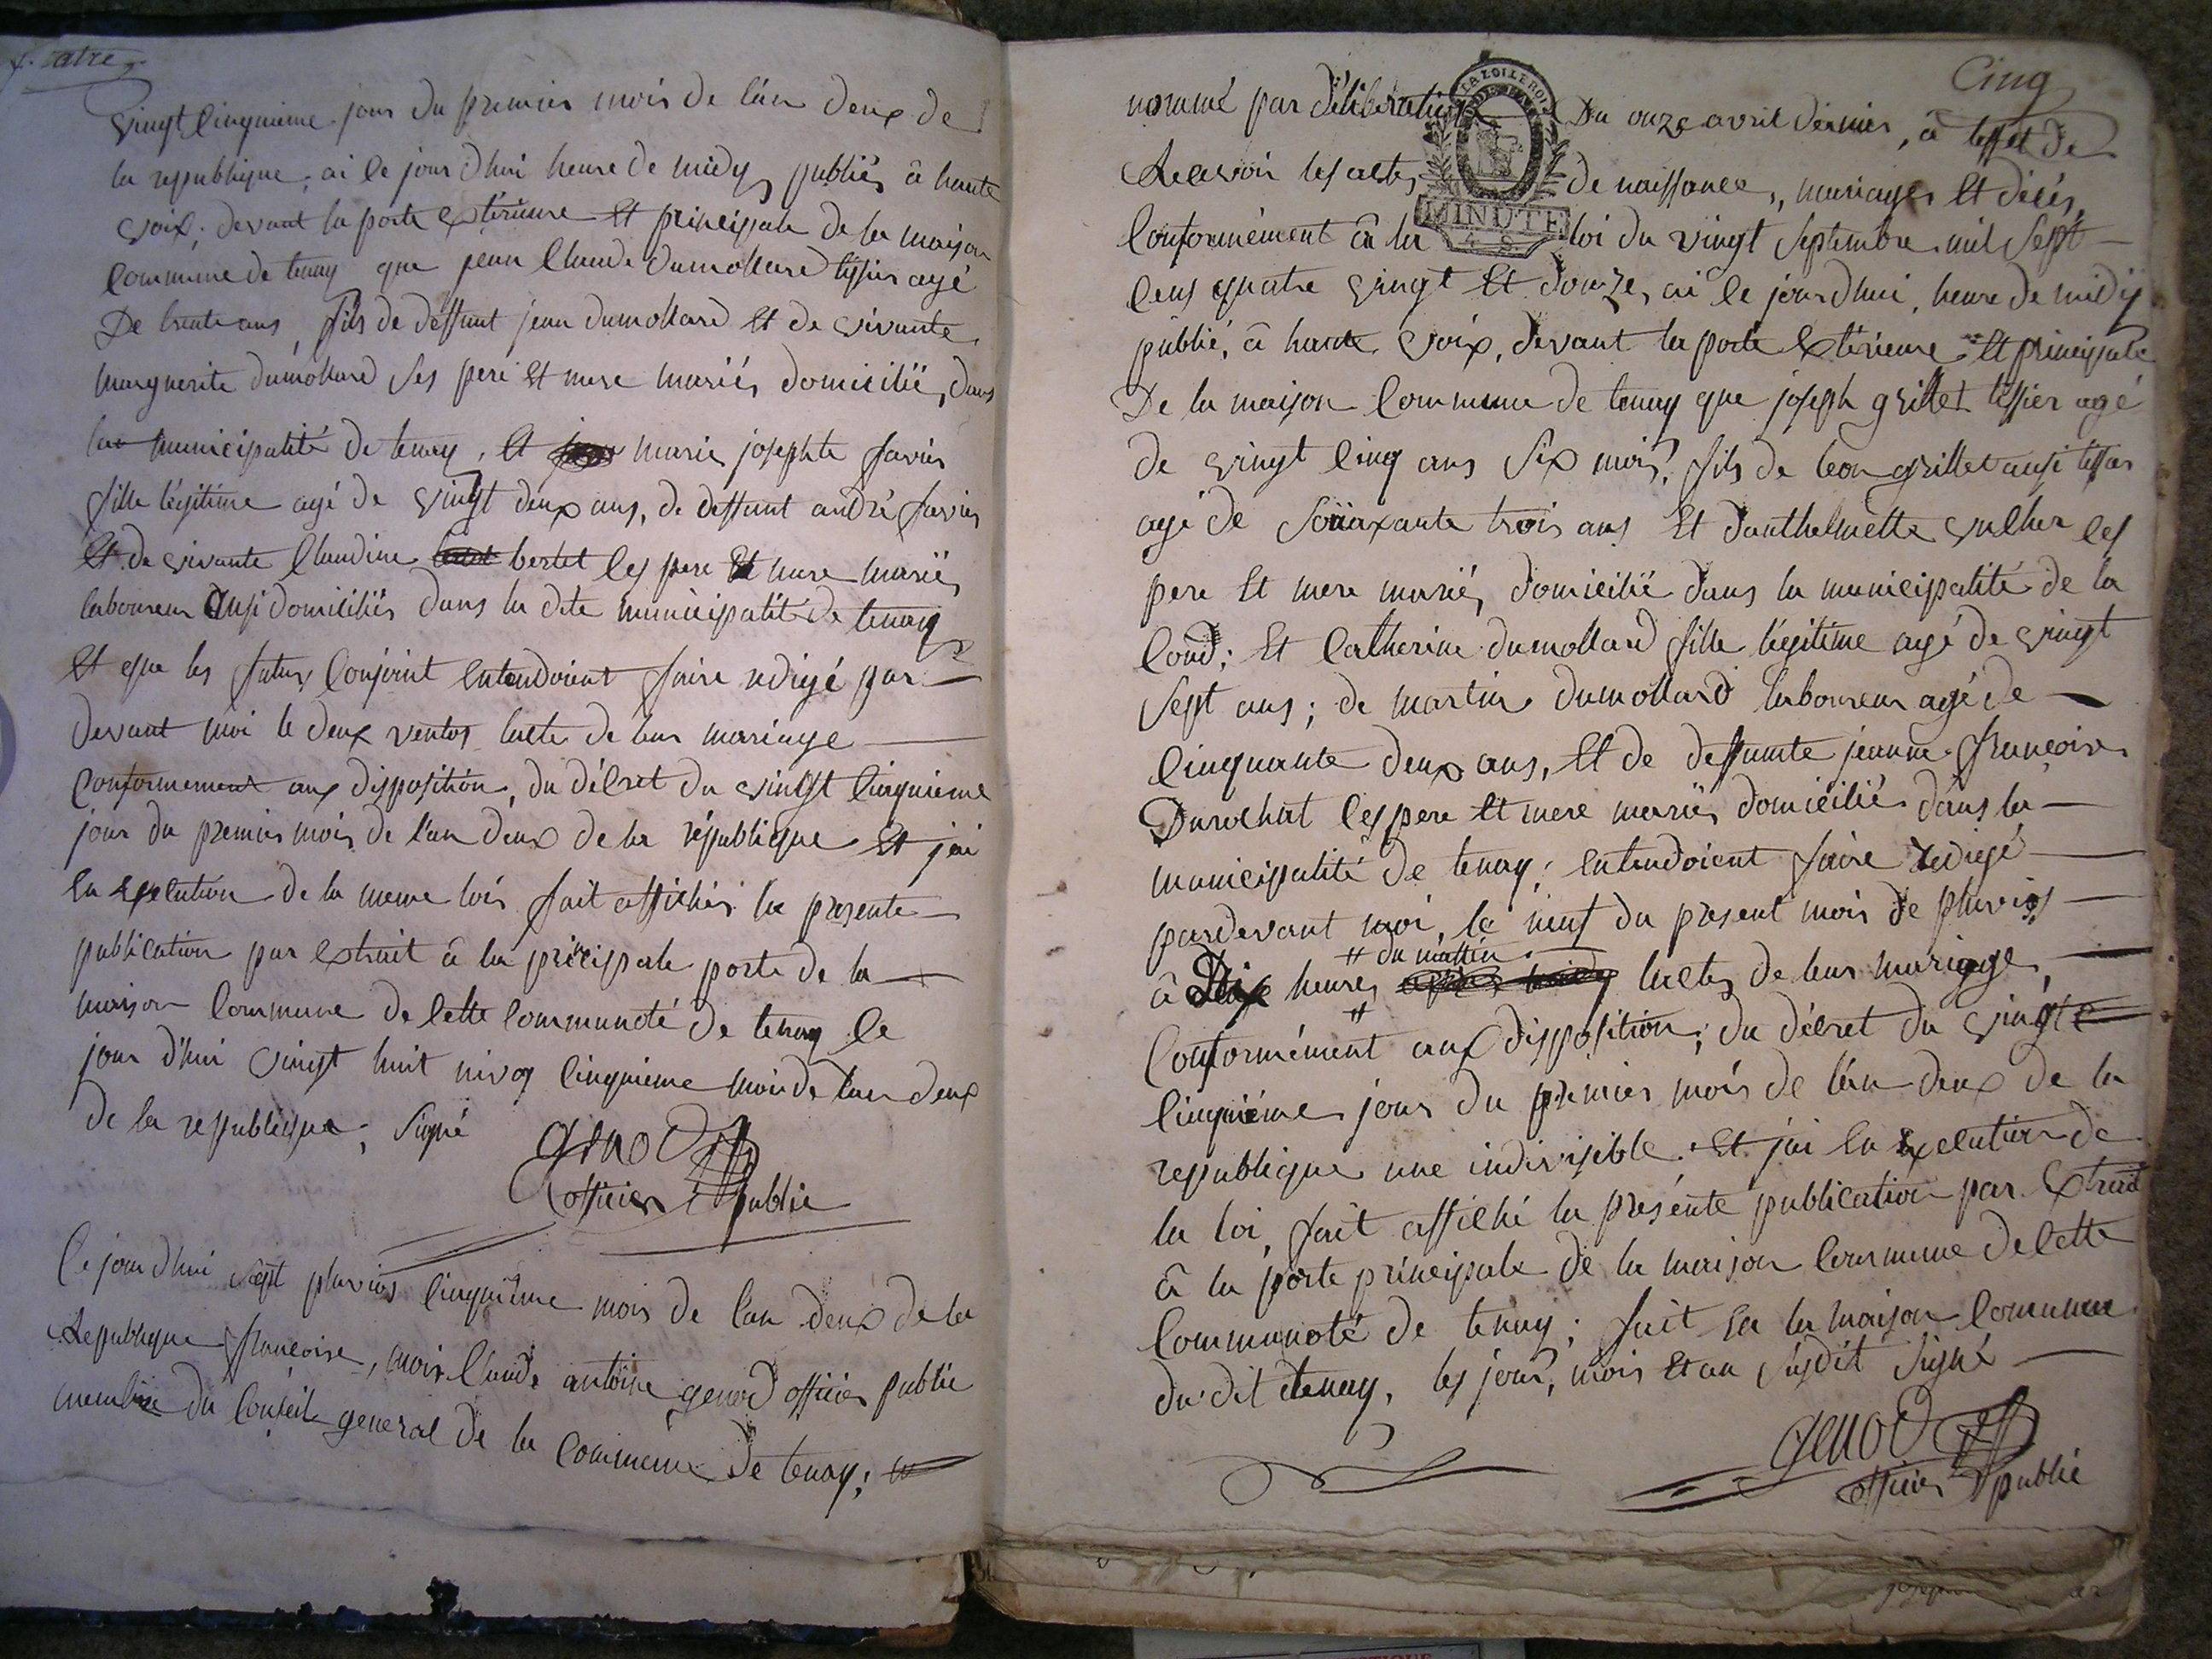 vingt cinquieme jour du premier mois de l'an deux de
la republique, ai ce jour d'hui heure de midy publiés à haute
voix, devant la porte extérieure et principale de la maison
commune de tenay que jean Claude dumollard tissier agé
De trente ans, fils de deffunt jean dumollard et de vivante
marguerite dumollard ses pere et mere mariés domicilié, dans
la municipalité de tenay, et marie josephte favier
fille légitime agé de vingt deux ans, de deffunt andré favier
et de vivante Claudine bertet ces pere et mere mariés
laboureur ausi domiciliés dans la dite municipalité de tenay
et que les futurs conjoint entendoient faire redigé par
devant moi le deux ventos lacte de leur mariage
conformement aux disposition, du décret du vingt cinquieme
jour du premier mois de l'an deux de la république et j'ai
en execution de la meme loix fait affichér la presente
publication par extrait à la principale porte de la
maison commune de cette communoté de tenay ce
jour d'hui vingt huit nivos cinquieme mois de l'an deux
de la republique, signé
genod
officier public
Ce jour d'hui sept pluvios cinquième mois de l'an deux de la
Republique françoise, moi Claude antoine genod officier public
membre du conseil general de la commune de tenay,
Cinq
nommé par déliberation Du onze avril dernier, à leffet de
LA LOI LE ROI
Recevoir les actes de naissances, mariages et décés,
MINUTE
4 S
conformément à la loi du vingt septembre mil sept
cens quatre vingt et douze, ai ce jourd'hui, heure de midy
publié, à haute voix, devant la porte extérieure et principale
De la maison commune de tenay que joseph grillet tissier agé
de vingt cinq ans six mois, fils de leon grillet ausi tissier
agé de soixante trois ans et danthelmette ces
pere et mere mariés, domicilié dans la municipalité de la
Cond; et Catherine dumollard fille légitime agé de vingt
sept ans; de martin dumollard laboureur agé de
cinquante deux ans, et de deffunte jeanne françoise
Durochat ces pere et mere mariés domiciliés dans la
municipalité de tenay; entendoient faire redigé
pardevant moi, le neuf du present mois de pluvios
# du mattin
à Dix heures # lactes de leur mariage,
conformément aux disposition, du décret du vingt
cinquiéme jour du premier mois de l'an deux de la
republique une indivisible. et j'ai en execution de
la loi, fait affiché la présente publication par extrait
à la porte principale de la maison commune de cette
communoté de tenay; fait en la maison commune
du dit tenay, les jour, mois et an susdit signé
genod
officier public